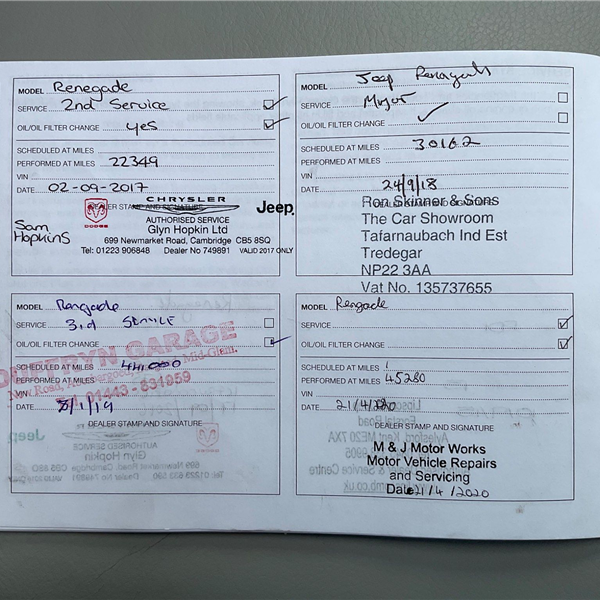 MODEL Renegade
SERVICE 2nd Service
OIL/OIL FILTER CHANGE yes
SCHEDULED AT MILES
PERFORMED AT MILES 22349
VIN
DATE 02-09-2017
DEALER STAMP AND SIGNATURE
CHRYSLER
Jeep
DODGE
AUTHORISED SERVICE
Sam Hopkins
Glyn Hopkin Ltd
699 Newmarket Road, Cambridge CB5 8SQ
Tel: 01223 906848 Dealer No 749891 VALID 2017 ONLY
MODEL Jeep
SERVICE Major
OIL/OIL FILTER CHANGE
SCHEDULED AT MILES 30162
PERFORMED AT MILES
VIN
DATE 24/9/18
Ron Skinner & Sons
The Car Showroom
Tafarnaubach Ind Est
Tredegar
NP22 3AA
Vat No. 135737655
MODEL Rengade
SERVICE 3rd Service
OIL/OIL FILTER CHANGE
SCHEDULED AT MILES
PERFORMED AT MILES
VIN
DATE 8/1/19
DEALER STAMP AND SIGNATURE
GARAGE
New Road, Mid-Glam.
Tel 01443-831959
MODEL Rengade
SERVICE
OIL/OIL FILTER CHANGE
SCHEDULED AT MILES
PERFORMED AT MILES 45280
VIN
DATE
DEALER STAMP AND SIGNATURE
M & J Motor Works
Motor Vehicle Repairs
and Servicing
Date 21/4/2020